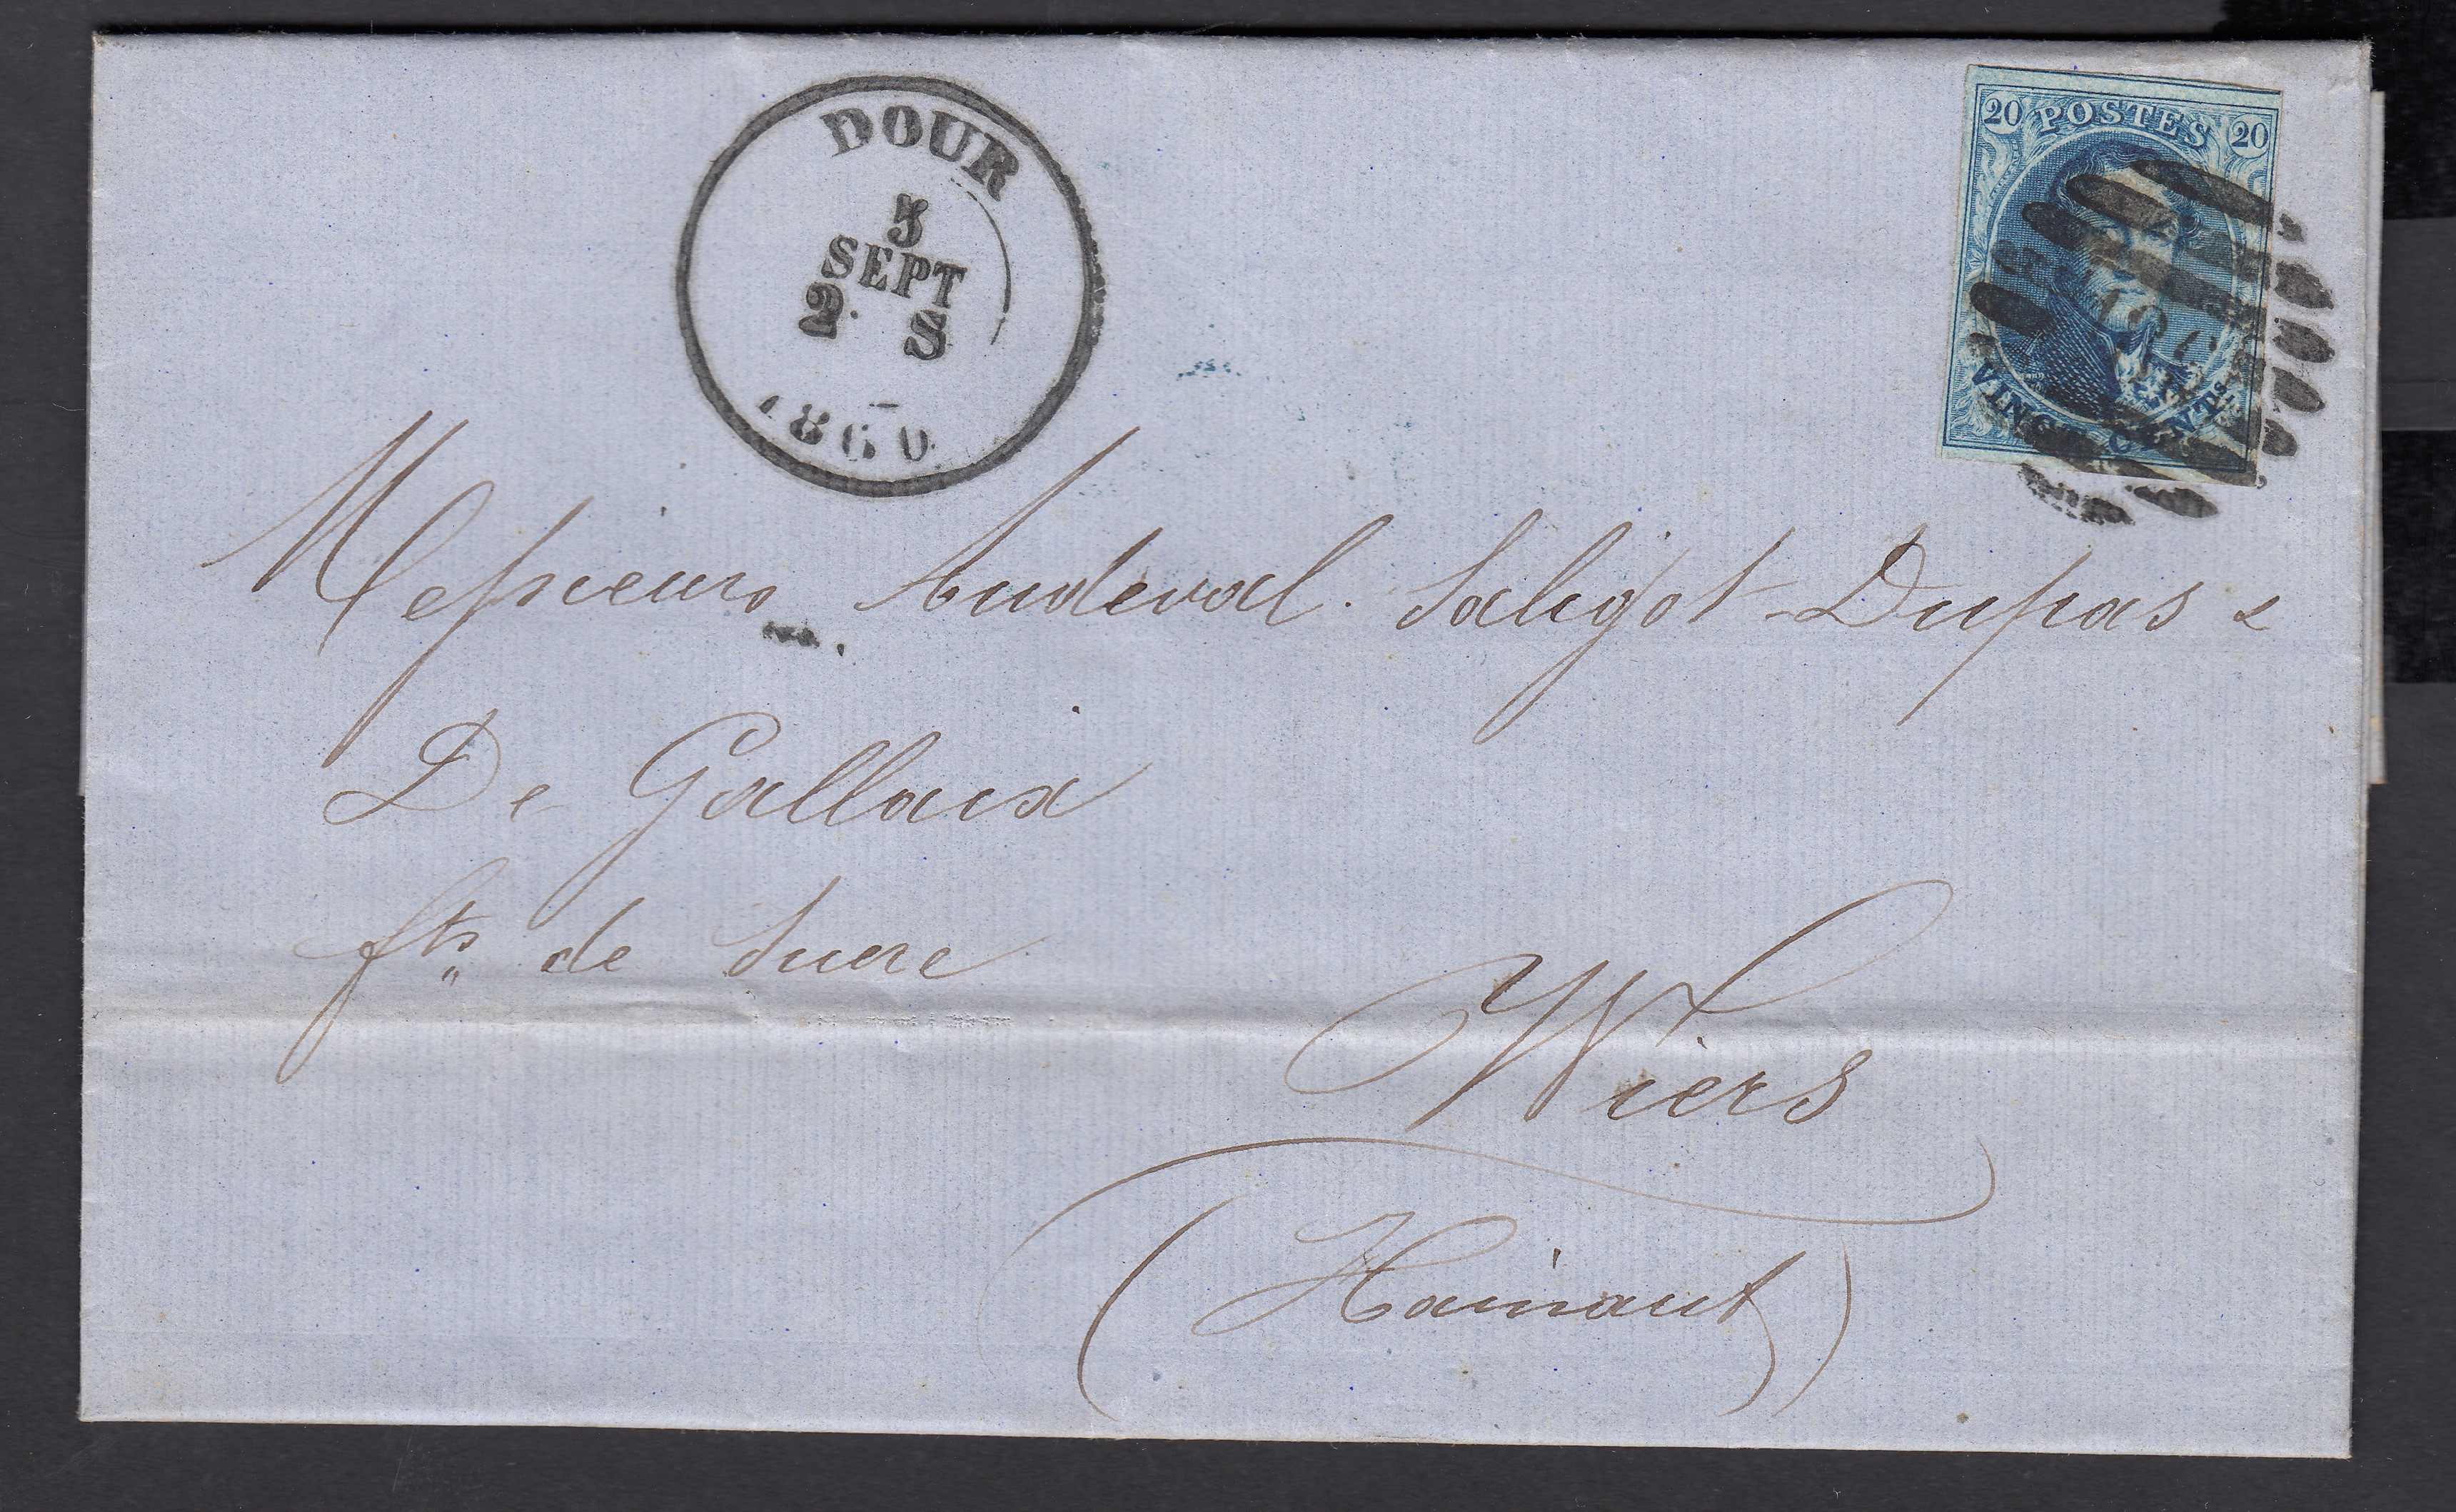 DOUR
5
SEPT
2 S
1860
20 POSTES 20
VINGT CENTS
Messieurs Audeval. Saligot-Dupas &
De Gallaix
fts de Sucre
Wiers
(Hainaut)